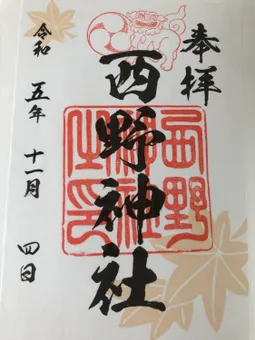 奉拝
西野神社
西野
神社
之印
令和五年十一月四日